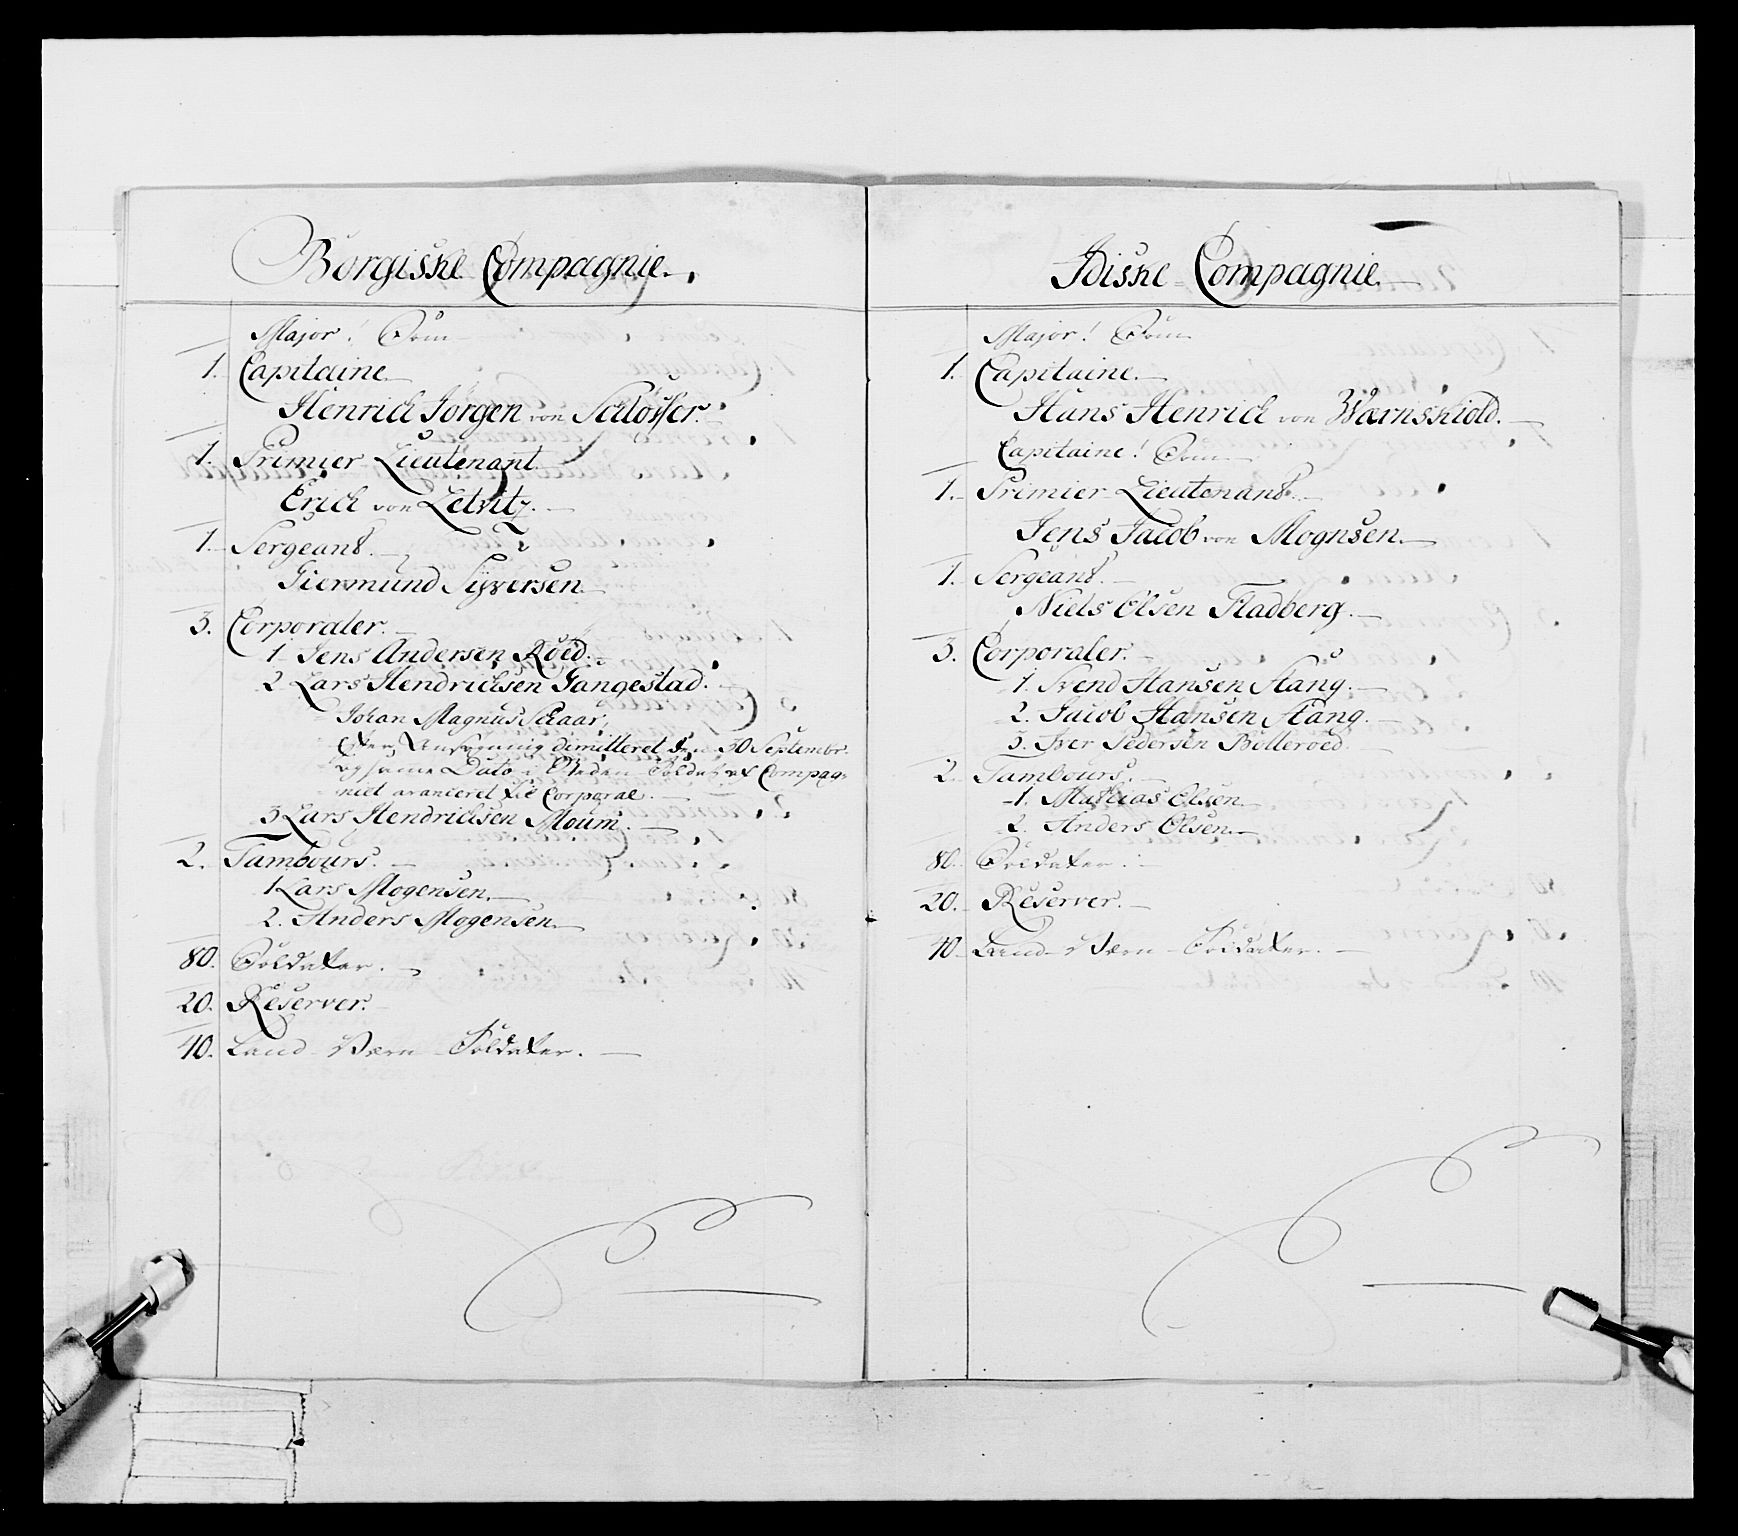 Borgiske Compagnie.
Major!
1. Capitaine
Henrich Jørgen von Schløsser.
1. Premier Lieutenant
Erich von Zetvitz.
1. Sergeant.
Giermund Syversen.
3. Corporaler.
1 Jens Andersen Røed.
2 Lars Hendrichsen Gangestad.
Johan Magnus Schaar,
efter Ansøgning dimitteret den 30 Septembr.
og samme Dato i Steden Soldat ved Compag-
niet avanceret til Corporal.
3 Lars Hendrichsen Moum.
2. Tambours.
1 Lars Mogensen.
2. Anders Mogensen.
80. Soldater.
20. Reserver.
40. Land-Værn-Soldater.
Idiske Compagnie.
Major!
1. Capitaine.
Hans Henrich von Wærnskiold.
Capitaine!
1. Premier Lieutenant.
Jens Jacob von Mognsen.
1. Sergeant.
Niels Olsen Fladberg.
3. Corporaler.
1. Svend Hansen Stang.
2. Jacob Hansen Stang.
3. Iver Pedersen Bølleroed.
2. Tambours.
1. Mathias Olsen.
2. Anders Olsen.
80. Soldater.
20. Reserver.
40. Land-Værn-Soldater.